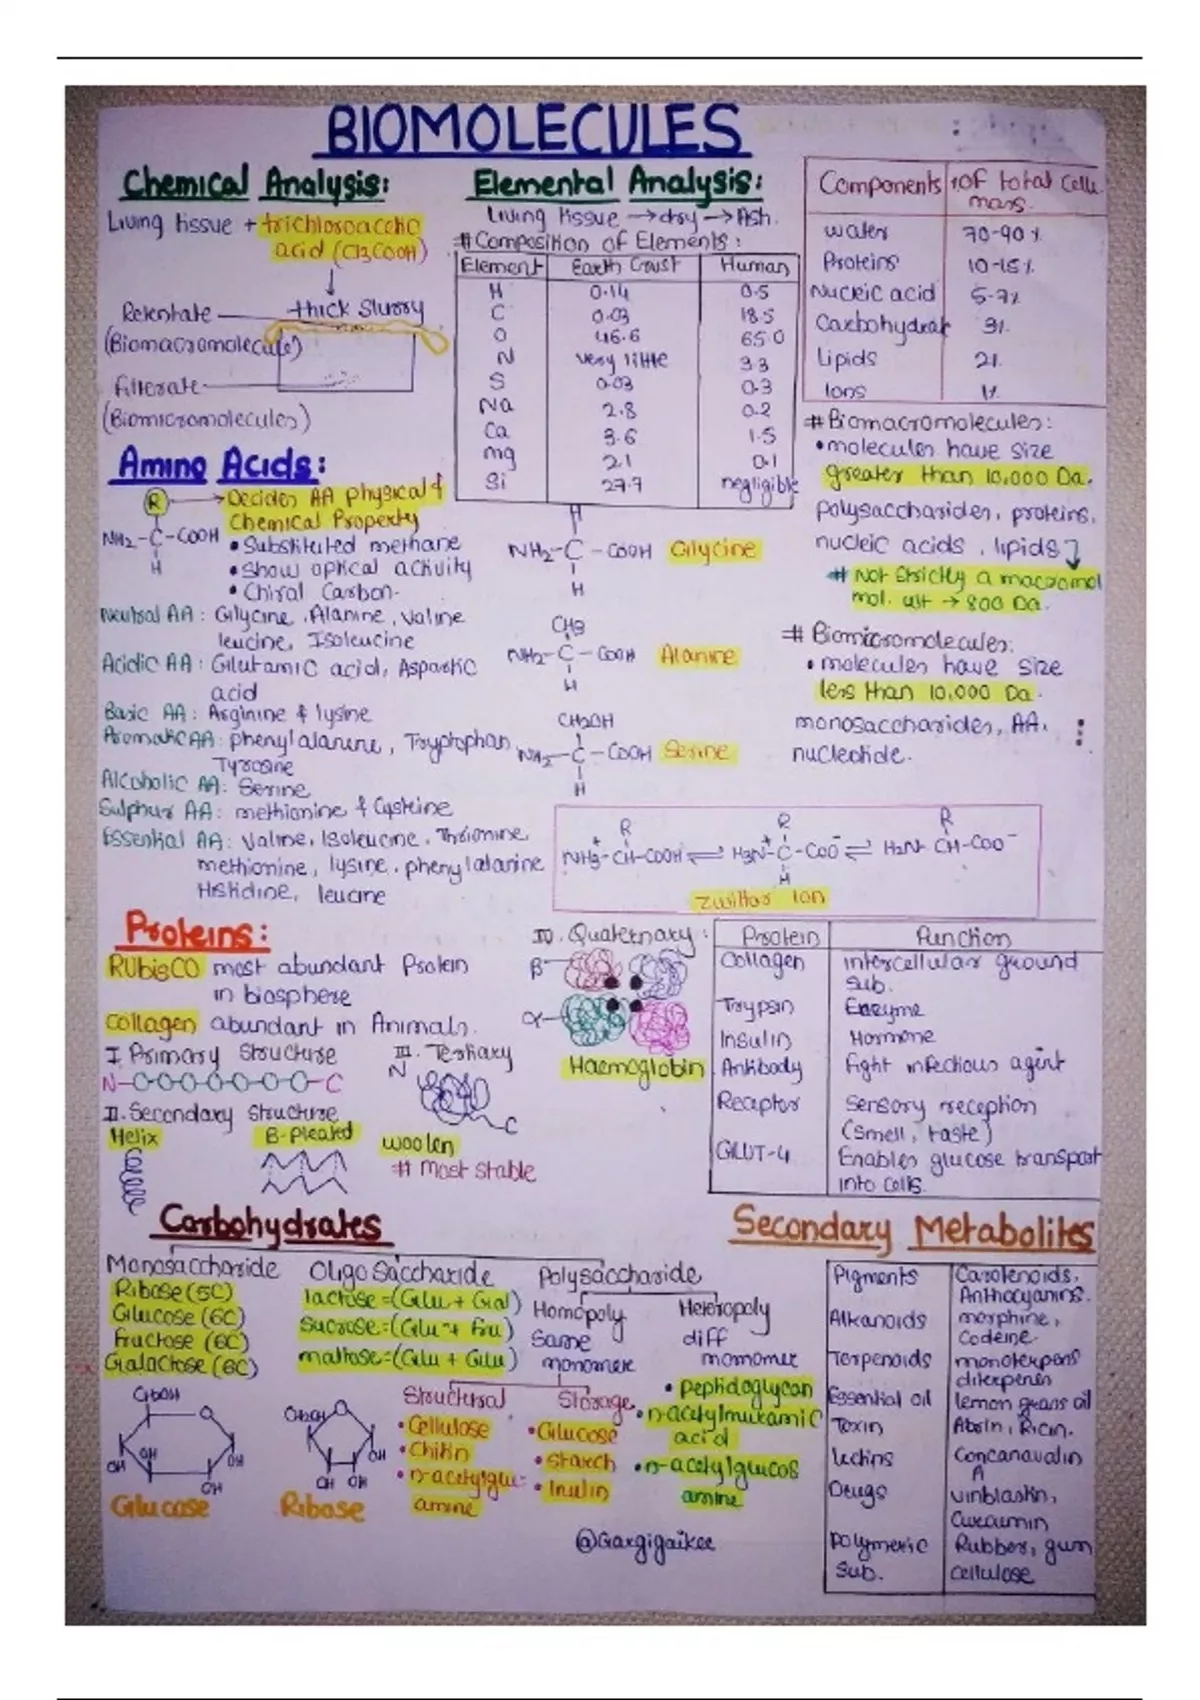 BIOMOLECULES
Chemical Analysis:
Living tissue + trichloroacetic
acid (Cl3COOH)
thick Slurry
Retentate
(Biomacromolecule)
filterate
(Biomicromolecules)
Elemental Analysis:
Living tissue → dry → Ash.
# Composition of Elements:
Element Earth Crust Human
H 0.14 0.5
C 0.03 18.5
O 46.6 65.0
N very little 3.3
S 0.03 0.3
Na 2.8 0.2
Ca 3.6 1.5
mg 2.1 0.1
Si 27.7 negligible
Components % of total cellu.
mass.
water 70-90%
Proteins 10-15%
Nucleic acid 5-7%
Carbohydrate 3%
Lipids 2%
Ions 1%
# Biomacromolecules:
• molecules have size
greater than 10,000 Da.
polysaccharides, proteins,
nucleic acids, lipids
# Not strictly a macromol
mol. wt → 800 Da.
# Biomicromolecules:
• molecules have size
less than 10,000 Da.
monosaccharides, AA,
nucleotide.
Amino Acids:
R → Decides AA physical &
Chemical Property
NH2-C-COOH
H
• Substituted methane
• Show optical activity
• Chiral Carbon.
Neutral AA: Glycine, Alanine, Valine
leucine, Isoleucine
Acidic AA: Glutamic acid, Aspartic
acid
Basic AA: Arginine & lysine
Aromatic AA: phenylalanine, Tryptophan
Tyrosine
Alcoholic AA: Serine
Sulphur AA: methionine & Cysteine
Essential AA: Valine, Isoleucine, Thrionine,
methionine, lysine, phenylalanine
Histidine, leucine
H
NH2-C-COOH Glycine
H
CH3
NH2-C-COOH Alanine
H
CH2OH
NH2-C-COOH Serine
H
R R R
NH3+-CH-COOH ⇌ H3N+-C-COO- ⇌ H2N-CH-COO-
H
Zwittor Ion
Proteins:
RUbisCO most abundant Protein
in biosphere
Collagen abundant in Animals.
I Primary Structure
N-O-O-O-O-O-O-O-C
II. Secondary Structure
Helix B-pleated
III. Tertiary
N
C
woolen
# most stable
IV. Quaternary:
β
α
Haemoglobin
Protein Function
Collagen intercellular ground
sub.
Trypsin Enzyme
Insulin Hormone
Antibody fight infectious agent
Receptor Sensory reception
(smell, taste)
GLUT-4 Enables glucose transport
into cells.
Carbohydrates
Monosaccharide
Ribose (5C)
Glucose (6C)
fructose (6C)
Galactose (6C)
OligoSaccharide
lactose = (Glu + Gal)
Sucrose = (Glu + fru)
maltose = (Glu + Glu)
Polysaccharide
Homopoly
Same
monomere
Heteropoly
diff
monomer
Structural
• Cellulose
• Chitin
• n-acetylglu-
amine
Storage
• Glucose
• starch
• Inulin
• peptidoglycan
• n-acetylmuramic
acid
• n-acetylglucos
amine
CH2OH
O
OH
OH
OH
OH
Glucose
OHCH
O
OH
OH OH
Ribose
@Gargigaikee
Secondary Metabolites
Pigments Carotenoids,
Anthocyanins.
Alkanoids morphine,
Codeine.
Terpenoids monoterpens
diterpenes
Essential oil lemon grass oil
Toxin Abrin, Ricin.
Lectins Concanavalin
A
Drugs vinblastin,
Curcumin
Polymeric Rubber, gum
Sub. cellulose